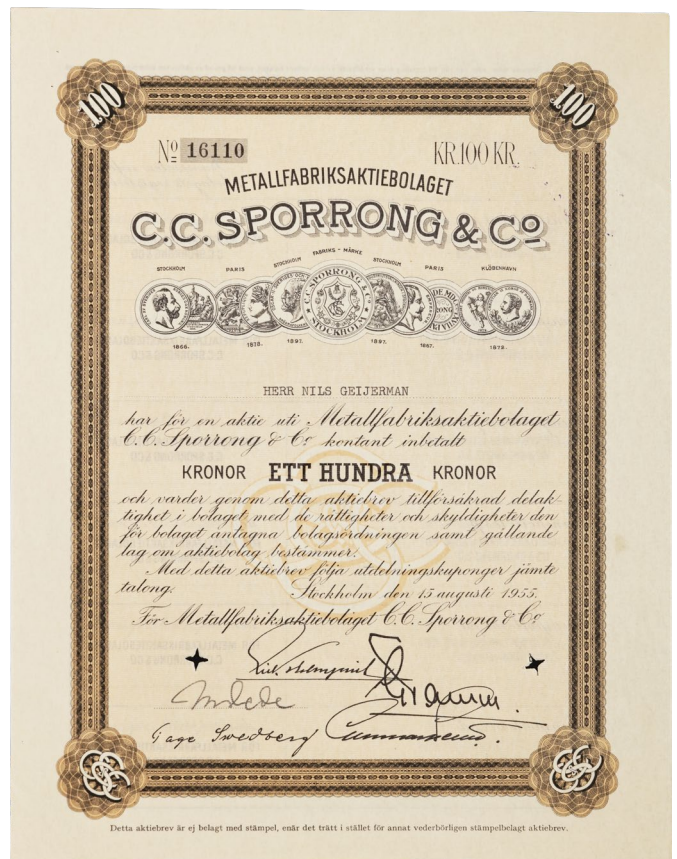 100 100
Nº 16110 KR.100 KR.
METALLFABRIKSAKTIEBOLAGET
C.C. SPORRONG & Cº
STOCKHOLM PARIS STOCKHOLM FABRIKS-MÄRKE STOCKHOLM PARIS KJÖBENHAVN
C.C. SPORRONG & Cº STOCKHOLM
1866. 1878. 1897. 1897. 1867. 1879.
HERR NILS GEIJERMAN
har för en aktie uti Metallfabriksaktiebolaget
C.C. Sporrong & Cº kontant inbetalt
KRONOR ETT HUNDRA KRONOR
och varder genom detta aktiebrev tillförsäkrad delak-
tighet i bolaget med de rättigheter och skyldigheter den
för bolaget antagna bolagsordningen samt gällande
lag om aktiebolag bestämmer.
Med detta aktiebrev följa utdelningskuponger jämte
talong.
Stockholm den 15 augusti 1955.
För Metallfabriksaktiebolaget C.C. Sporrong & Cº
Tage Swedberg
Detta aktiebrev är ej belagt med stämpel, enär det trätt i stället för annat vederbörligen stämpelbelagt aktiebrev.